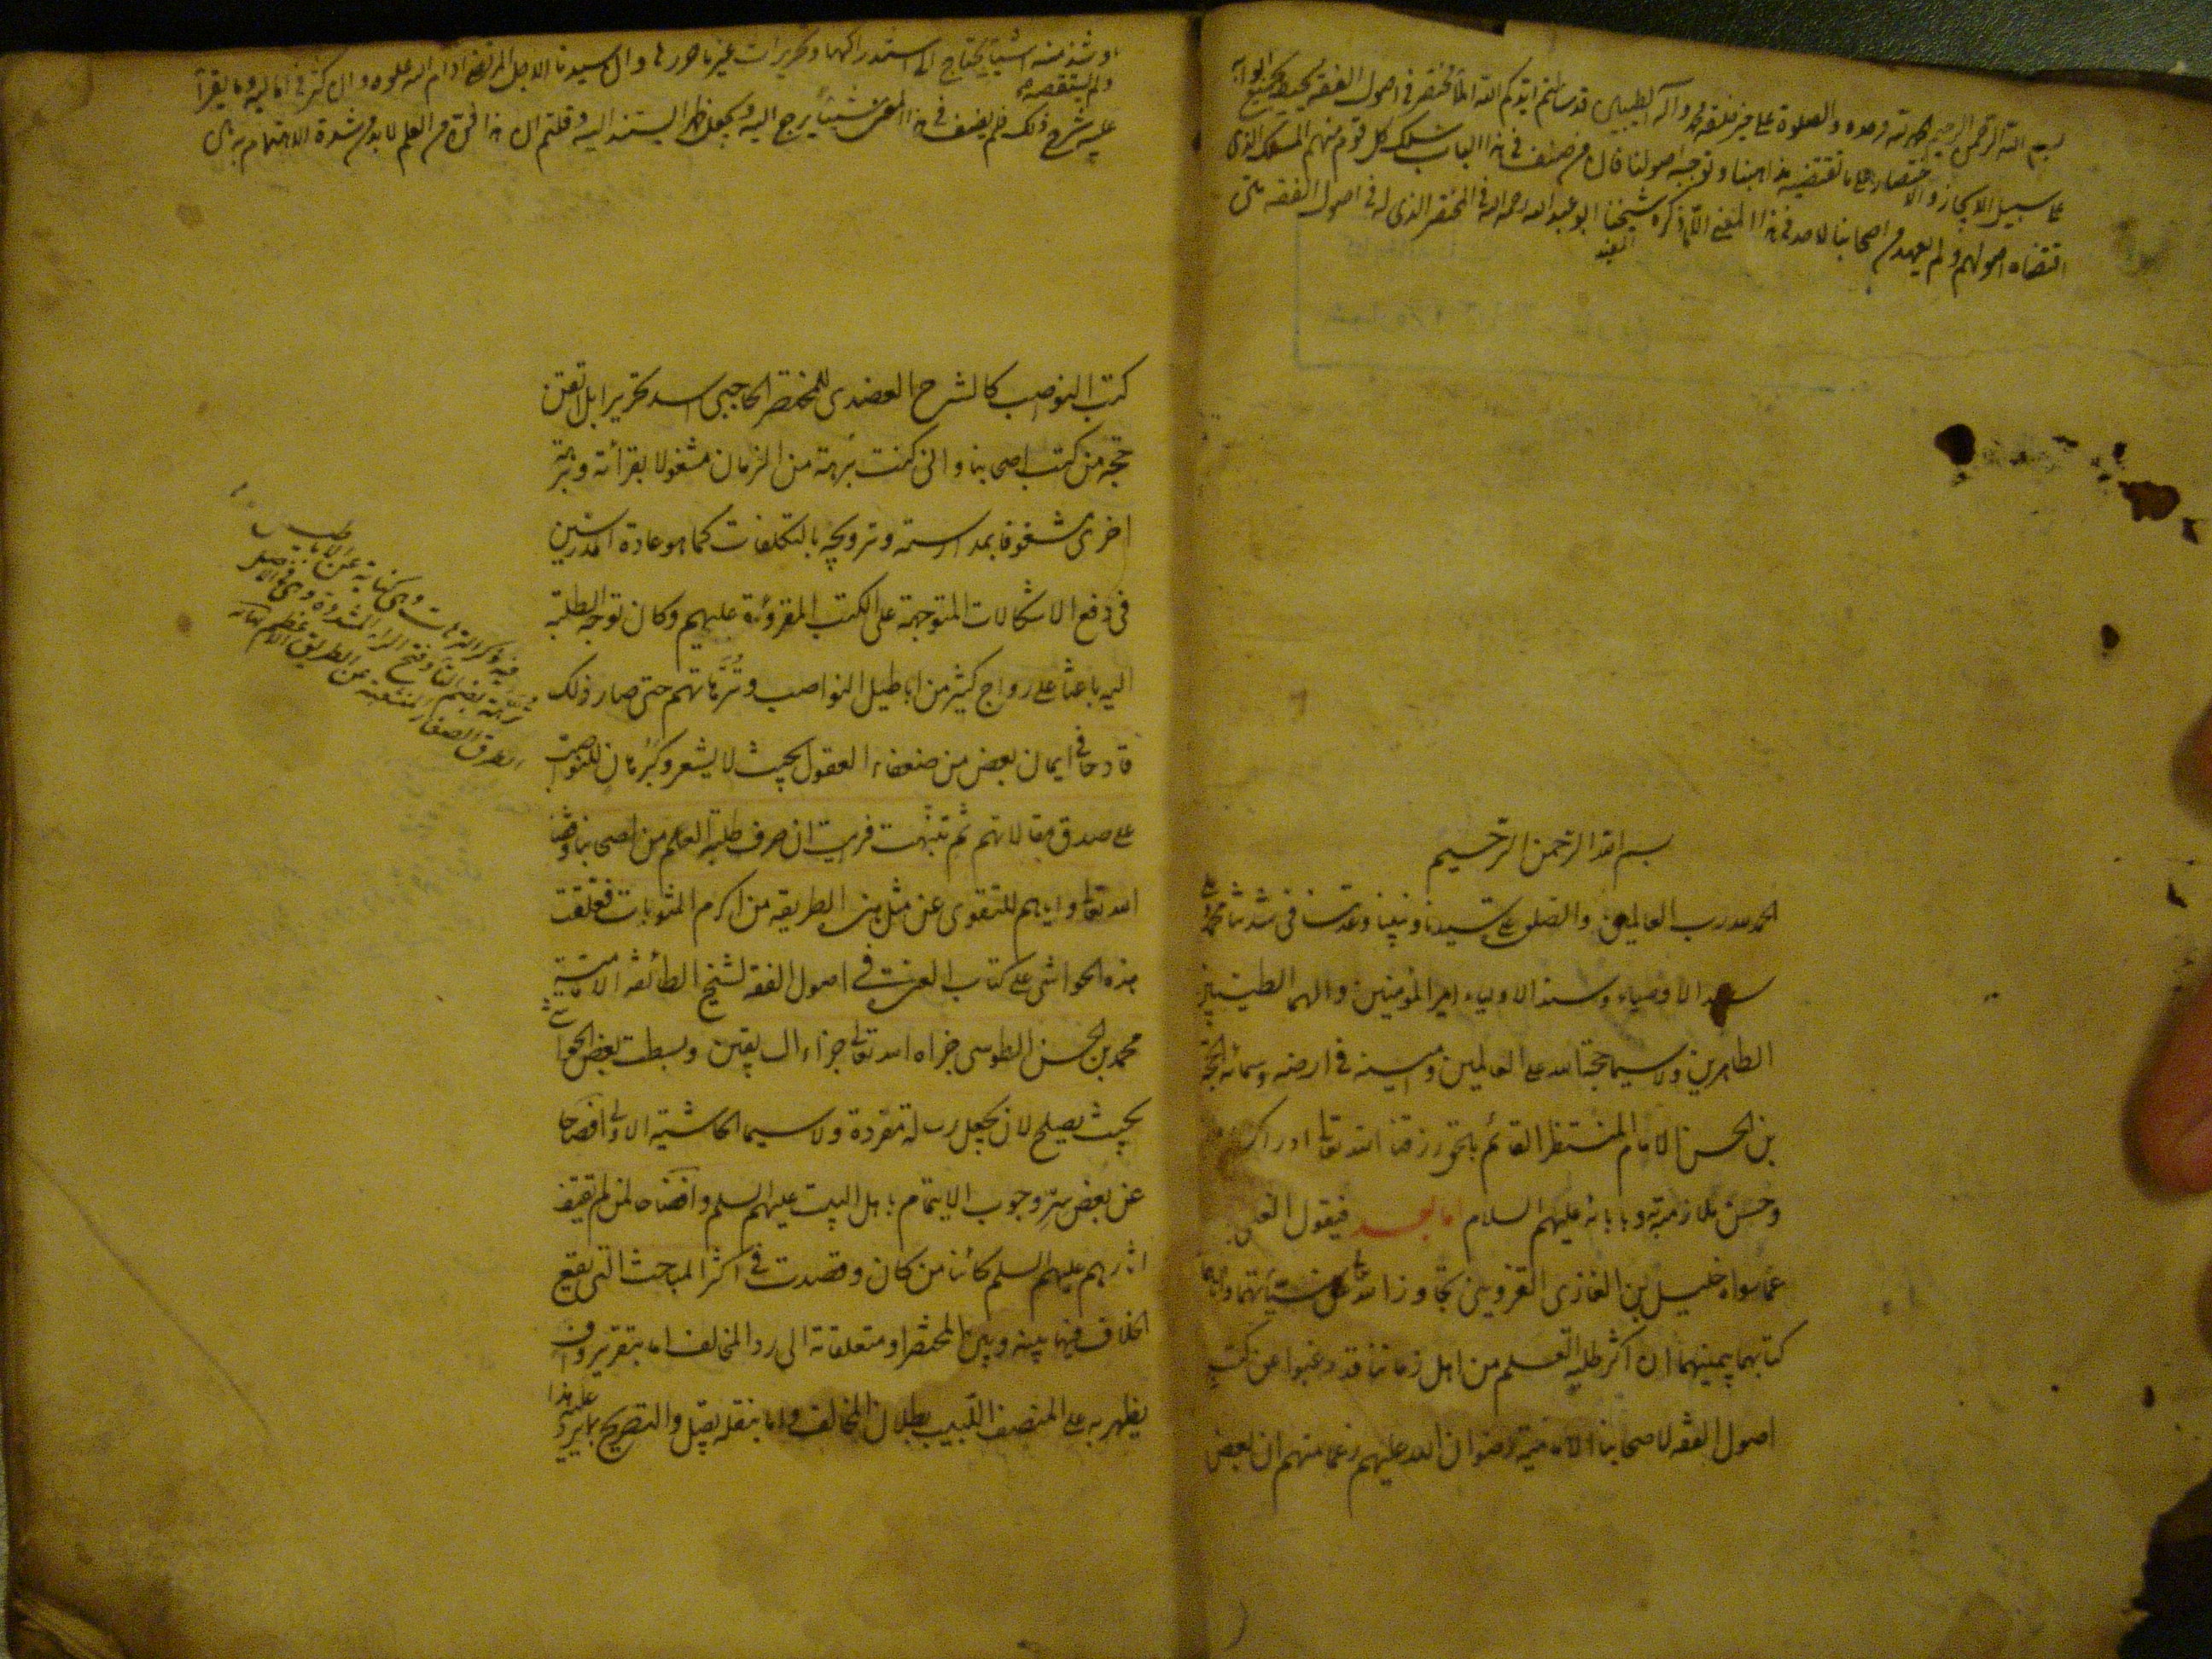 بسم الله الرحمن الرحيم الحمد لله وحده والصلوة على خير خلقه محمد وآله الطيبين قد سألتم ايدكم الله املاء مختصر في اصول الفقه يحيط بجميع ابوابه
على سبيل الايجاز والاختصار على ما تقتضيه مذاهبنا وتوجبه اصولنا فان من صنف في هذا الباب سلك كل قوم منهم المسلك الذى
اقتضاه اصولهم ولم يعهد من اصحابنا لاحد في هذا المعنى الا ما ذكره شيخنا ابو عبد الله رحمه الله في المختصر الذى له في اصول الفقه
المفيد
بسم الله الرحمن الرحيم
الحمد لله رب العالمين والصلوة على سيدنا ونبينا وعدتنا في شدتنا محمد وعلى
سيد الاوصياء وسند الاولياء امير المؤمنين والهما الطيبين
الطاهرين ولاسيما حجة الله على العالمين وامينه في ارضه وسمائه الحجة
بن الحسن الامام المنتظر القائم بالحق رزقنا الله تعالى ادراك
وحسن ملازمته وبابائه عليهم السلام اما بعد فيقول الغنى
عما سواه خليل بن الغازى القزوينى تجاوز الله تعالى عن سيئاتهما
كتابهما بيمينهما ان اكثر طلبة العلم من اهل زماننا قد رغبوا عن كتب
اصول الفقه لاصحابنا الامامية رضوان الله عليهم زعما منهم ان بعض
وشذ منه اشياء يحتاج الى استدراكها وتحريرات غير ما حررها وان سيدنا الاجل المرتضى ادام الله علوه وان كثر في اماليه وما يقرأ
ولم يستقصه
عليه شرح ذلك فلم يصنف في هذا المعنى شيئا يرجع اليه ويجعل ظهرا يستند اليه وقلتم ان هذا فن من العلم لابد من شدة الاهتمام به
كتب النواصب كالشرح العضدى للمختصر الحاجبى اسد تحريرا بل اتقن
حجة من كتب اصحابنا وانى كنت برهة من الزمان مشغولا بقراءته وبرهة
اخرى مشغوفا بمدارسته وترويجه بالتكلفات كما هو عادة المدرسين
في دفع الاشكالات المتوجهة على الكتب المقروءة عليهم وكان توجه الطلبة
اليه باعثا على رواج كثير من اباطيل النواصب وترهاتهم حتى صار ذلك
قادحا في ايمان بعض من ضعفاء العقول بحيث لا يشعر وكبرهان للنواصب
على صدق مقالاتهم ثم تنبهت فرايت ان صرف طلبة العلم من اصحابنا وفقنا
الله تعالى واياهم للتقوى عن مثل هذه الطريقة من اكرم المثوبات فعلقت
هذه الحواشى على كتاب العدة في اصول الفقه لشيخ الطائفة الامامية
محمد بن الحسن الطوسى جزاه الله تعالى جزاء السابقين وبسطت بعض الحواشى
بحيث يصلح لان يجعل رسالة مفردة ولاسيما الحاشية الاولى افصاحا
عن بعض سر وجوب الايتمام باهل البيت عليهم السلم وافضاحا لمن لم يقتف
اثارهم عليهم السلم كائنا من كان وقصدت في اكثر المباحث التى يقع
الخلاف فيها بينه وبين المختصر او متعلقاته الى رد المخالف اما بتقرير واف
يظهر به على المنصف اللبيب بطلان المخالف واما بنقله بقيل والتصريح بما يرد
عليه هذا
فيه ذكر الترهات وهى كناية عن الاباطيل
ترهة بضم التاء وفتح الراء المشددة وهى في الاصل
الطرق الصغار المتشعبة عن الطريق الاعظم